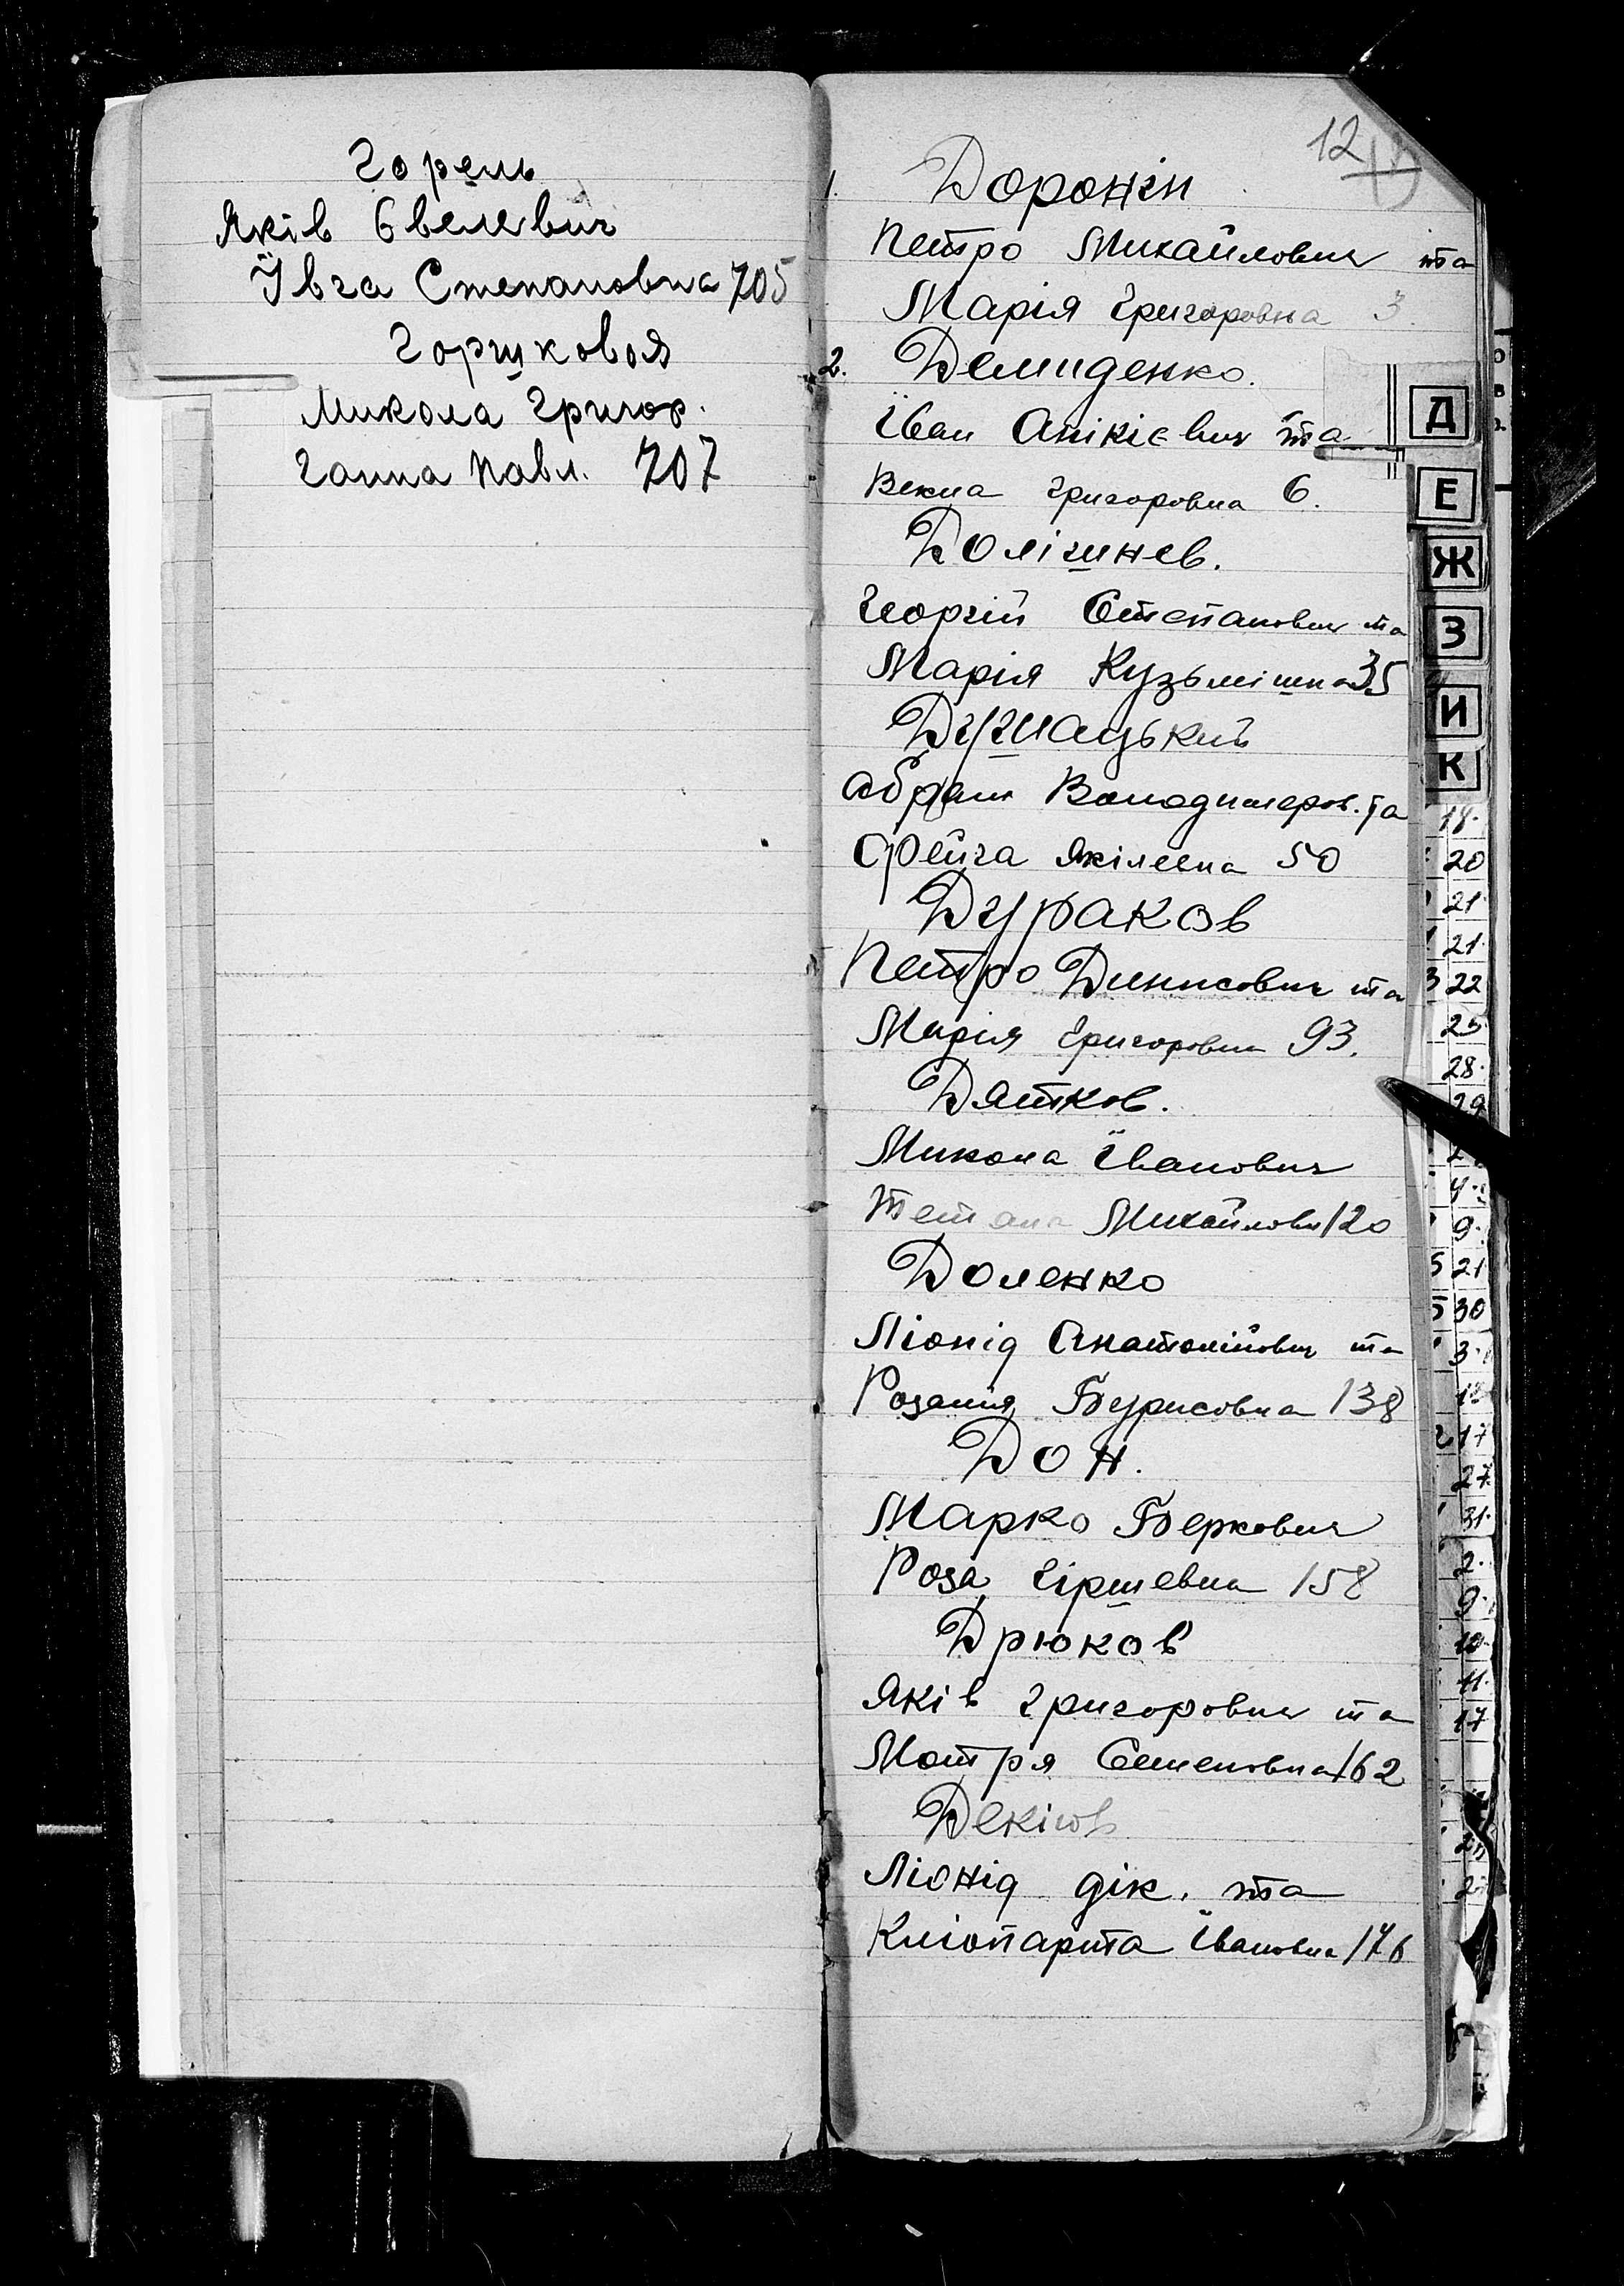 Горель
Яків Євелевич
Ївга Степановна 705
Горшковоз
Микола Григор.
Ганна Павл. 707
12
1. Доронін
Петро Михайлович та
Марія Григоровна 3.
2. Демиденко.
Іван Анікієвич та
Векла Григоровна 6.
Долішнев.
Георгій Степанович та
Марія Кузьмішна 35
Дугнацький
Абрам Володимеров. та
Фейга Якілевна 50
Дураков
Петро Динисович та
Марія Григоровна 93.
Дятков.
Микола Іванович
Тетяна Михайловн 120
Доленко
Ліонід Анатолійович та
Розалія Бурисовна 138
Дон.
Марко Беркович
Роза Гіршевна 158
Дрюков
Яків Григорович та
Мотря Семеновна 162
Ліонід дік. та
Кліопарта Івановна 176
Д
Е
Ж
З
И
К
18.
20
21.
21.
22
25
28.
29
9.
21
30
3.
17
27.
31.
2.
9.
10.
11.
17